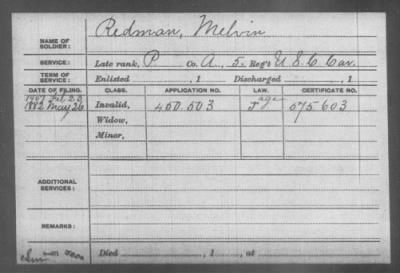 NAME OF SOLDIER: Redman, Melvin
SERVICE: Late rank, P Co. A, 5. Reg't U S C Cav.
TERM OF SERVICE: Enlisted , 1 Discharged , 1
DATE OF FILING. CLASS. APPLICATION NO. LAW. CERTIFICATE NO.
1907 Feb 23 age
1882 May 26 Invalid, 450.503 675603
Widow,
Minor,
ADDITIONAL SERVICES:
REMARKS:
Died , 1 , at